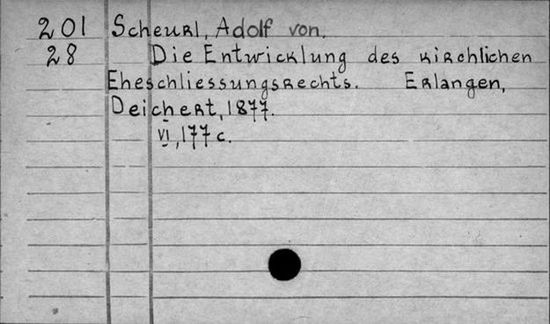 201 Scheurl, Adolf von.
28 Die Entwicklung des kirchlichen
Eheschliessungsrechts. Erlangen,
Deichert, 1877.
VI, 177 c.